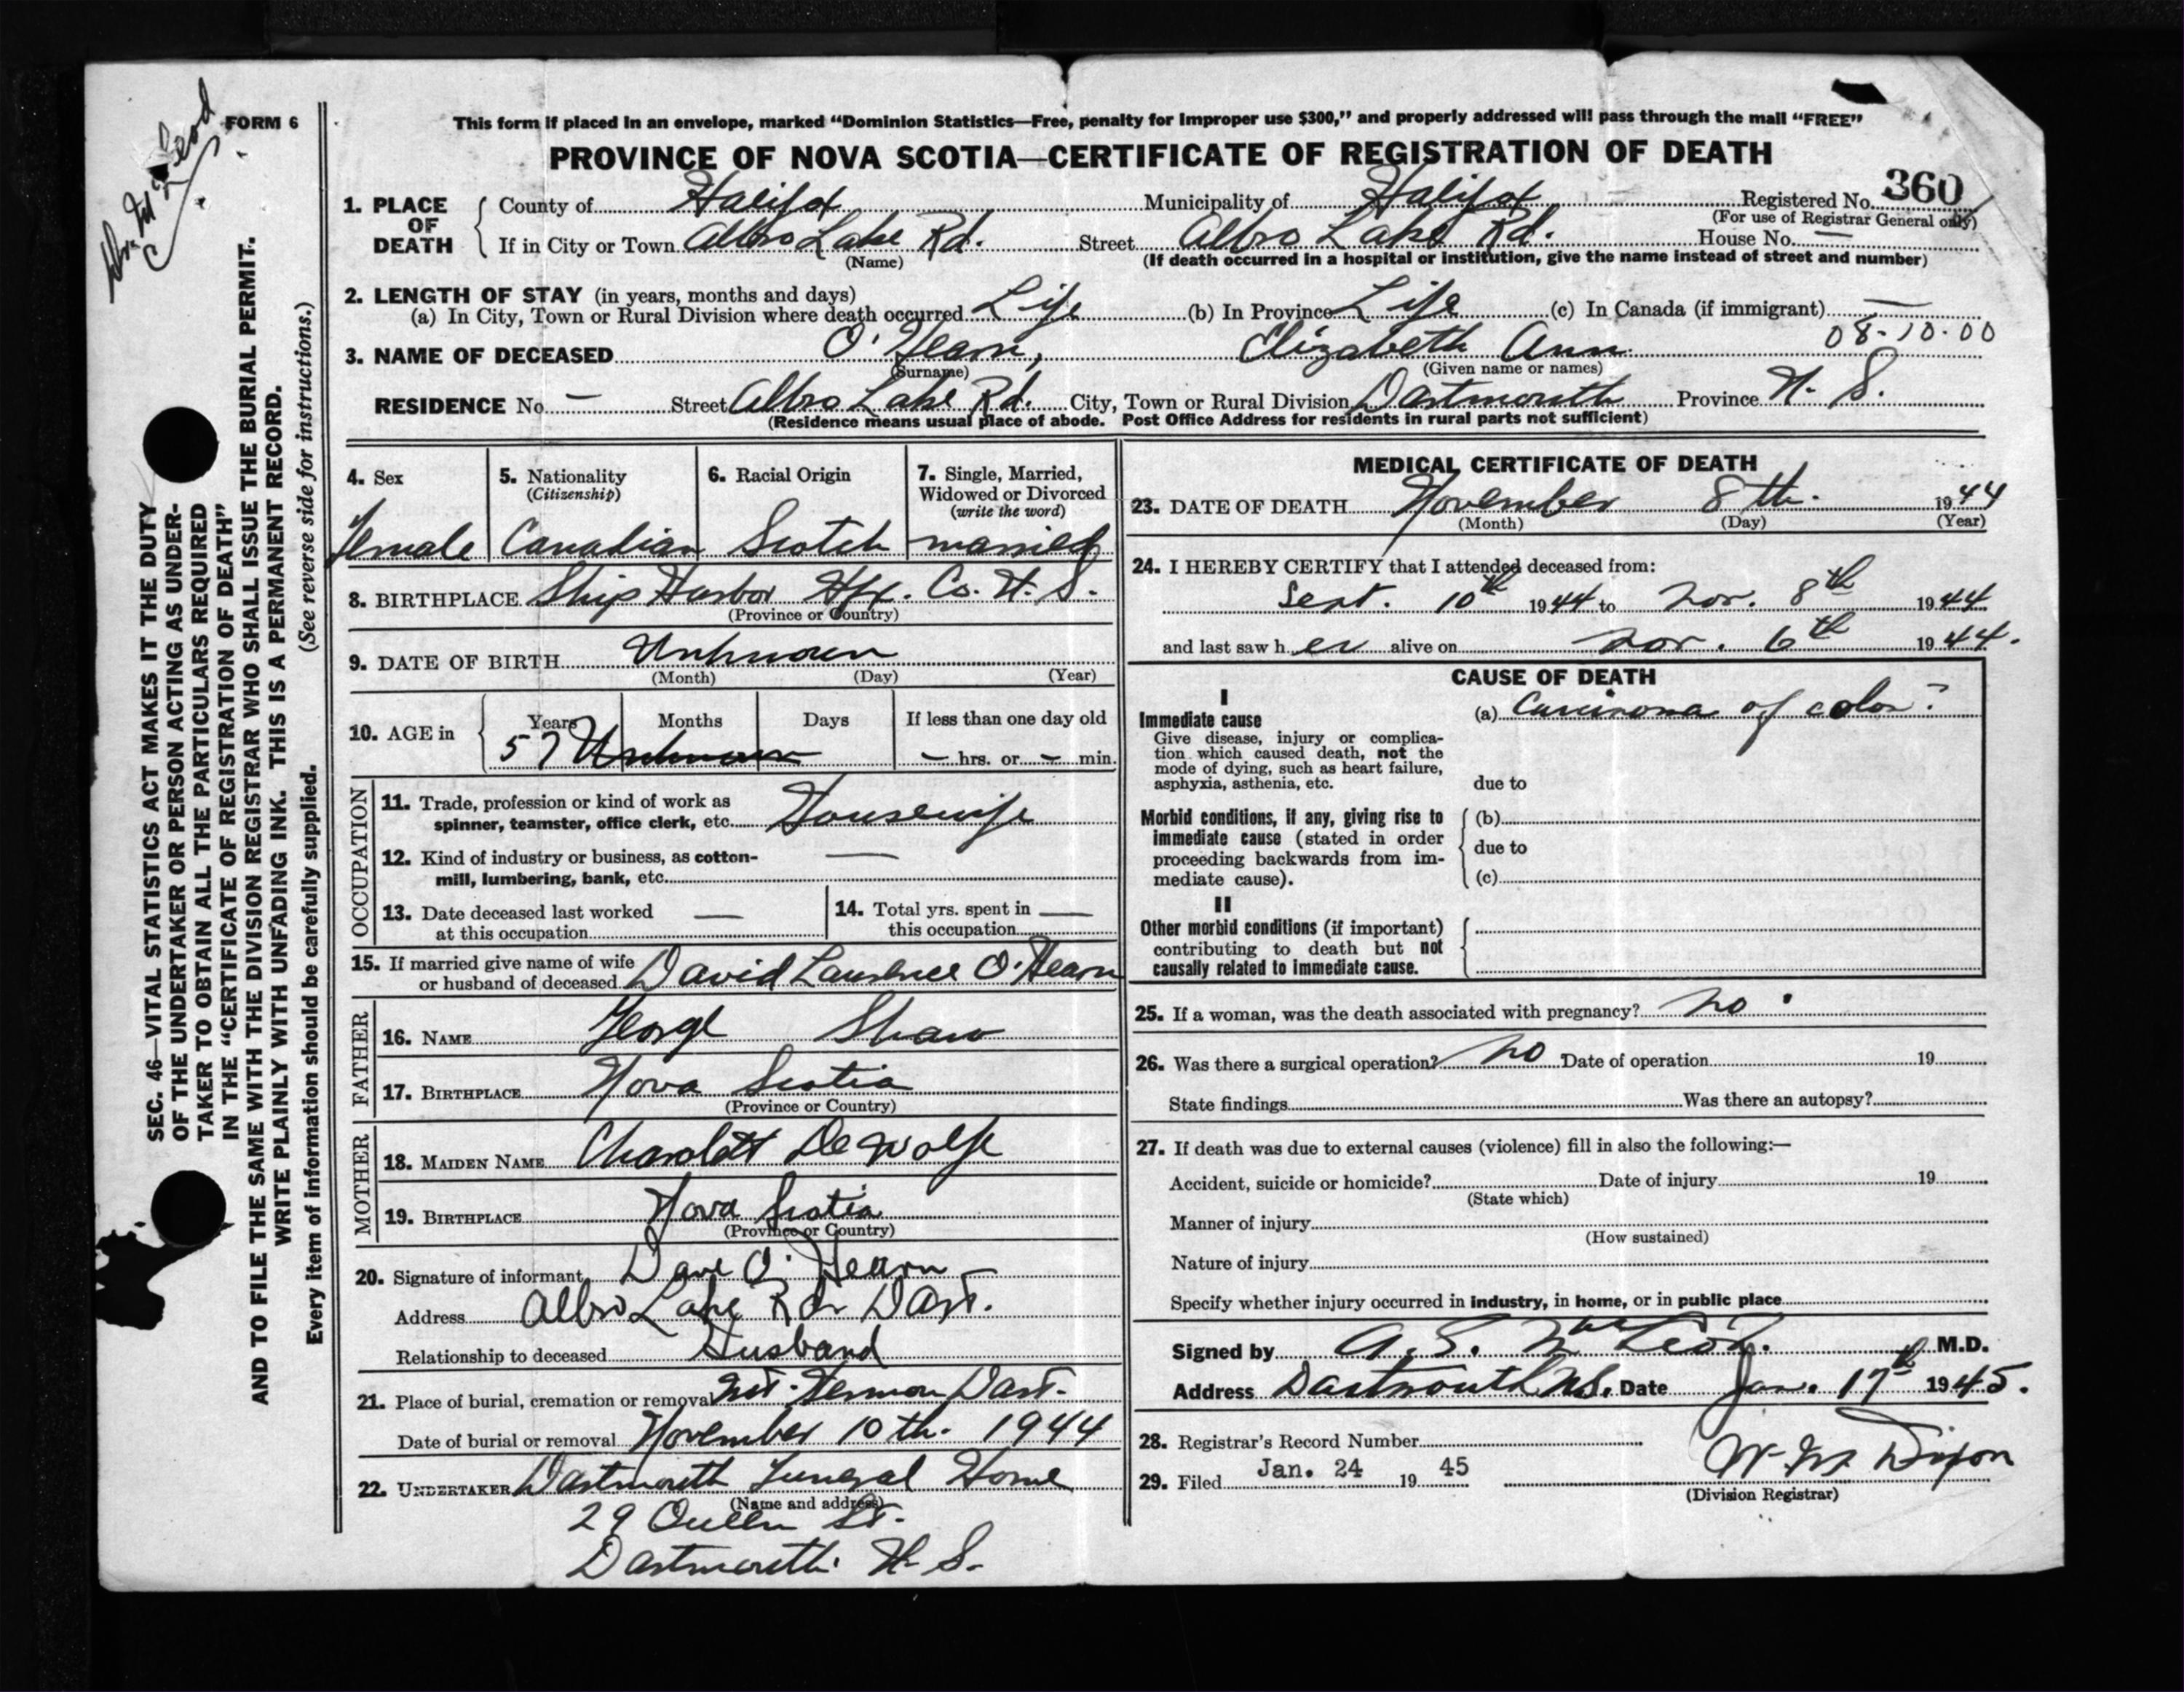 FORM 6
Dr. McLeod
SEC. 46—VITAL STATISTICS ACT MAKES IT THE DUTY
OF THE UNDERTAKER OR PERSON ACTING AS UNDER-
TAKER TO OBTAIN ALL THE PARTICULARS REQUIRED
IN THE "CERTIFICATE OF REGISTRATION OF DEATH"
AND TO FILE THE SAME WITH THE DIVISION REGISTRAR WHO SHALL ISSUE THE BURIAL PERMIT.
WRITE PLAINLY WITH UNFADING INK. THIS IS A PERMANENT RECORD.
Every item of information should be carefully supplied. (See reverse side for instructions.)
This form if placed in an envelope, marked "Dominion Statistics—Free, penalty for improper use $300," and properly addressed will pass through the mail "FREE"
PROVINCE OF NOVA SCOTIA—CERTIFICATE OF REGISTRATION OF DEATH
1. PLACE OF DEATH County of Halifax Municipality of Halifax Registered No. 360
(For use of Registrar General only)
If in City or Town Albro Lake Rd. Street Albro Lake Rd. House No. —
(Name) (If death occurred in a hospital or institution, give the name instead of street and number)
2. LENGTH OF STAY (in years, months and days)
(a) In City, Town or Rural Division where death occurred Life (b) In Province Life (c) In Canada (if immigrant) —
08-10-00
3. NAME OF DECEASED O'Hearn, Elizabeth Ann
(Surname) (Given name or names)
RESIDENCE No. — Street Albro Lake Rd. City, Town or Rural Division Dartmouth Province N. S.
(Residence means usual place of abode. Post Office Address for residents in rural parts not sufficient)
4. Sex 5. Nationality 6. Racial Origin 7. Single, Married,
(Citizenship) Widowed or Divorced
(write the word)
Female Canadian Scotch married
8. BIRTHPLACE Ship Harbor Hfx. Co. N. S.
(Province or Country)
9. DATE OF BIRTH Unknown
(Month) (Day) (Year)
10. AGE in Years Months Days If less than one day old
57 Unknown — hrs. or — min.
OCCUPATION
11. Trade, profession or kind of work as
spinner, teamster, office clerk, etc. Housewife
12. Kind of industry or business, as cotton- —
mill, lumbering, bank, etc.
13. Date deceased last worked — 14. Total yrs. spent in —
at this occupation this occupation
15. If married give name of wife
or husband of deceased David Laurence O'Hearn
FATHER
16. NAME George Shaw
17. BIRTHPLACE Nova Scotia
(Province or Country)
MOTHER
18. MAIDEN NAME Charolott De Wolfe
19. BIRTHPLACE Nova Scotia
(Province or Country)
20. Signature of informant Dave O'Hearn
Address Albro Lake Rd. Dart.
Relationship to deceased Husband
21. Place of burial, cremation or removal Mt. Hermon Dart.
Date of burial or removal November 10th. 1944
22. UNDERTAKER Dartmouth Funeral Home
(Name and address)
29 Queen St.
Dartmouth. N. S.
MEDICAL CERTIFICATE OF DEATH
23. DATE OF DEATH November 8th. 1944
(Month) (Day) (Year)
24. I HEREBY CERTIFY that I attended deceased from:
Sept. 10th 1944 to Nov. 8th 1944
and last saw her alive on Nov. 6th 1944.
CAUSE OF DEATH
I
Immediate cause (a) Carcinoma of colon.
Give disease, injury or complica-
tion which caused death, not the
mode of dying, such as heart failure,
asphyxia, asthenia, etc. due to
Morbid conditions, if any, giving rise to (b)
immediate cause (stated in order
proceeding backwards from im- due to
mediate cause). (c)
II
Other morbid conditions (if important)
contributing to death but not
causally related to immediate cause.
25. If a woman, was the death associated with pregnancy? no.
26. Was there a surgical operation? no Date of operation 19
State findings Was there an autopsy?
27. If death was due to external causes (violence) fill in also the following:—
Accident, suicide or homicide? Date of injury 19
(State which)
Manner of injury
(How sustained)
Nature of injury
Specify whether injury occurred in industry, in home, or in public place
Signed by A. S. MacLeod. M.D.
Address Dartmouth N.S. Date Jan. 17th 1945.
28. Registrar's Record Number
29. Filed Jan. 24 19 45 W. Dixon
(Division Registrar)